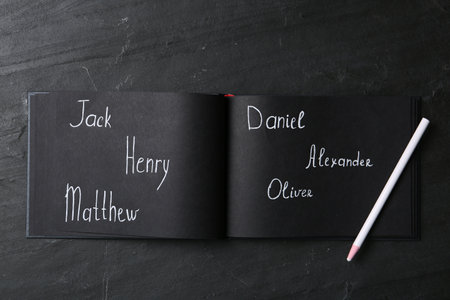 Jack
Henry
Matthew
Daniel
Alexander
Oliver